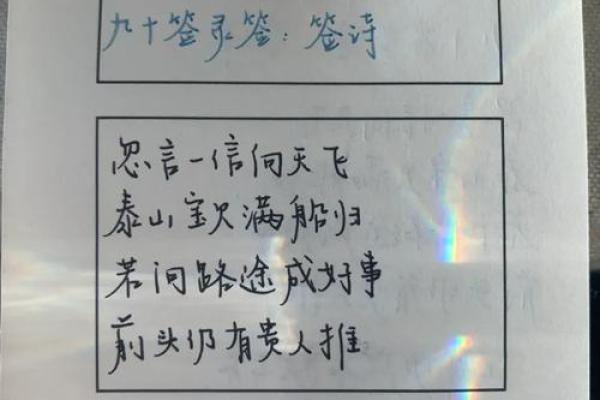 九十签录签：签诗
忽言一信向天飞
泰山宝贝满船归
若问路途成好事
前头仍有贵人推